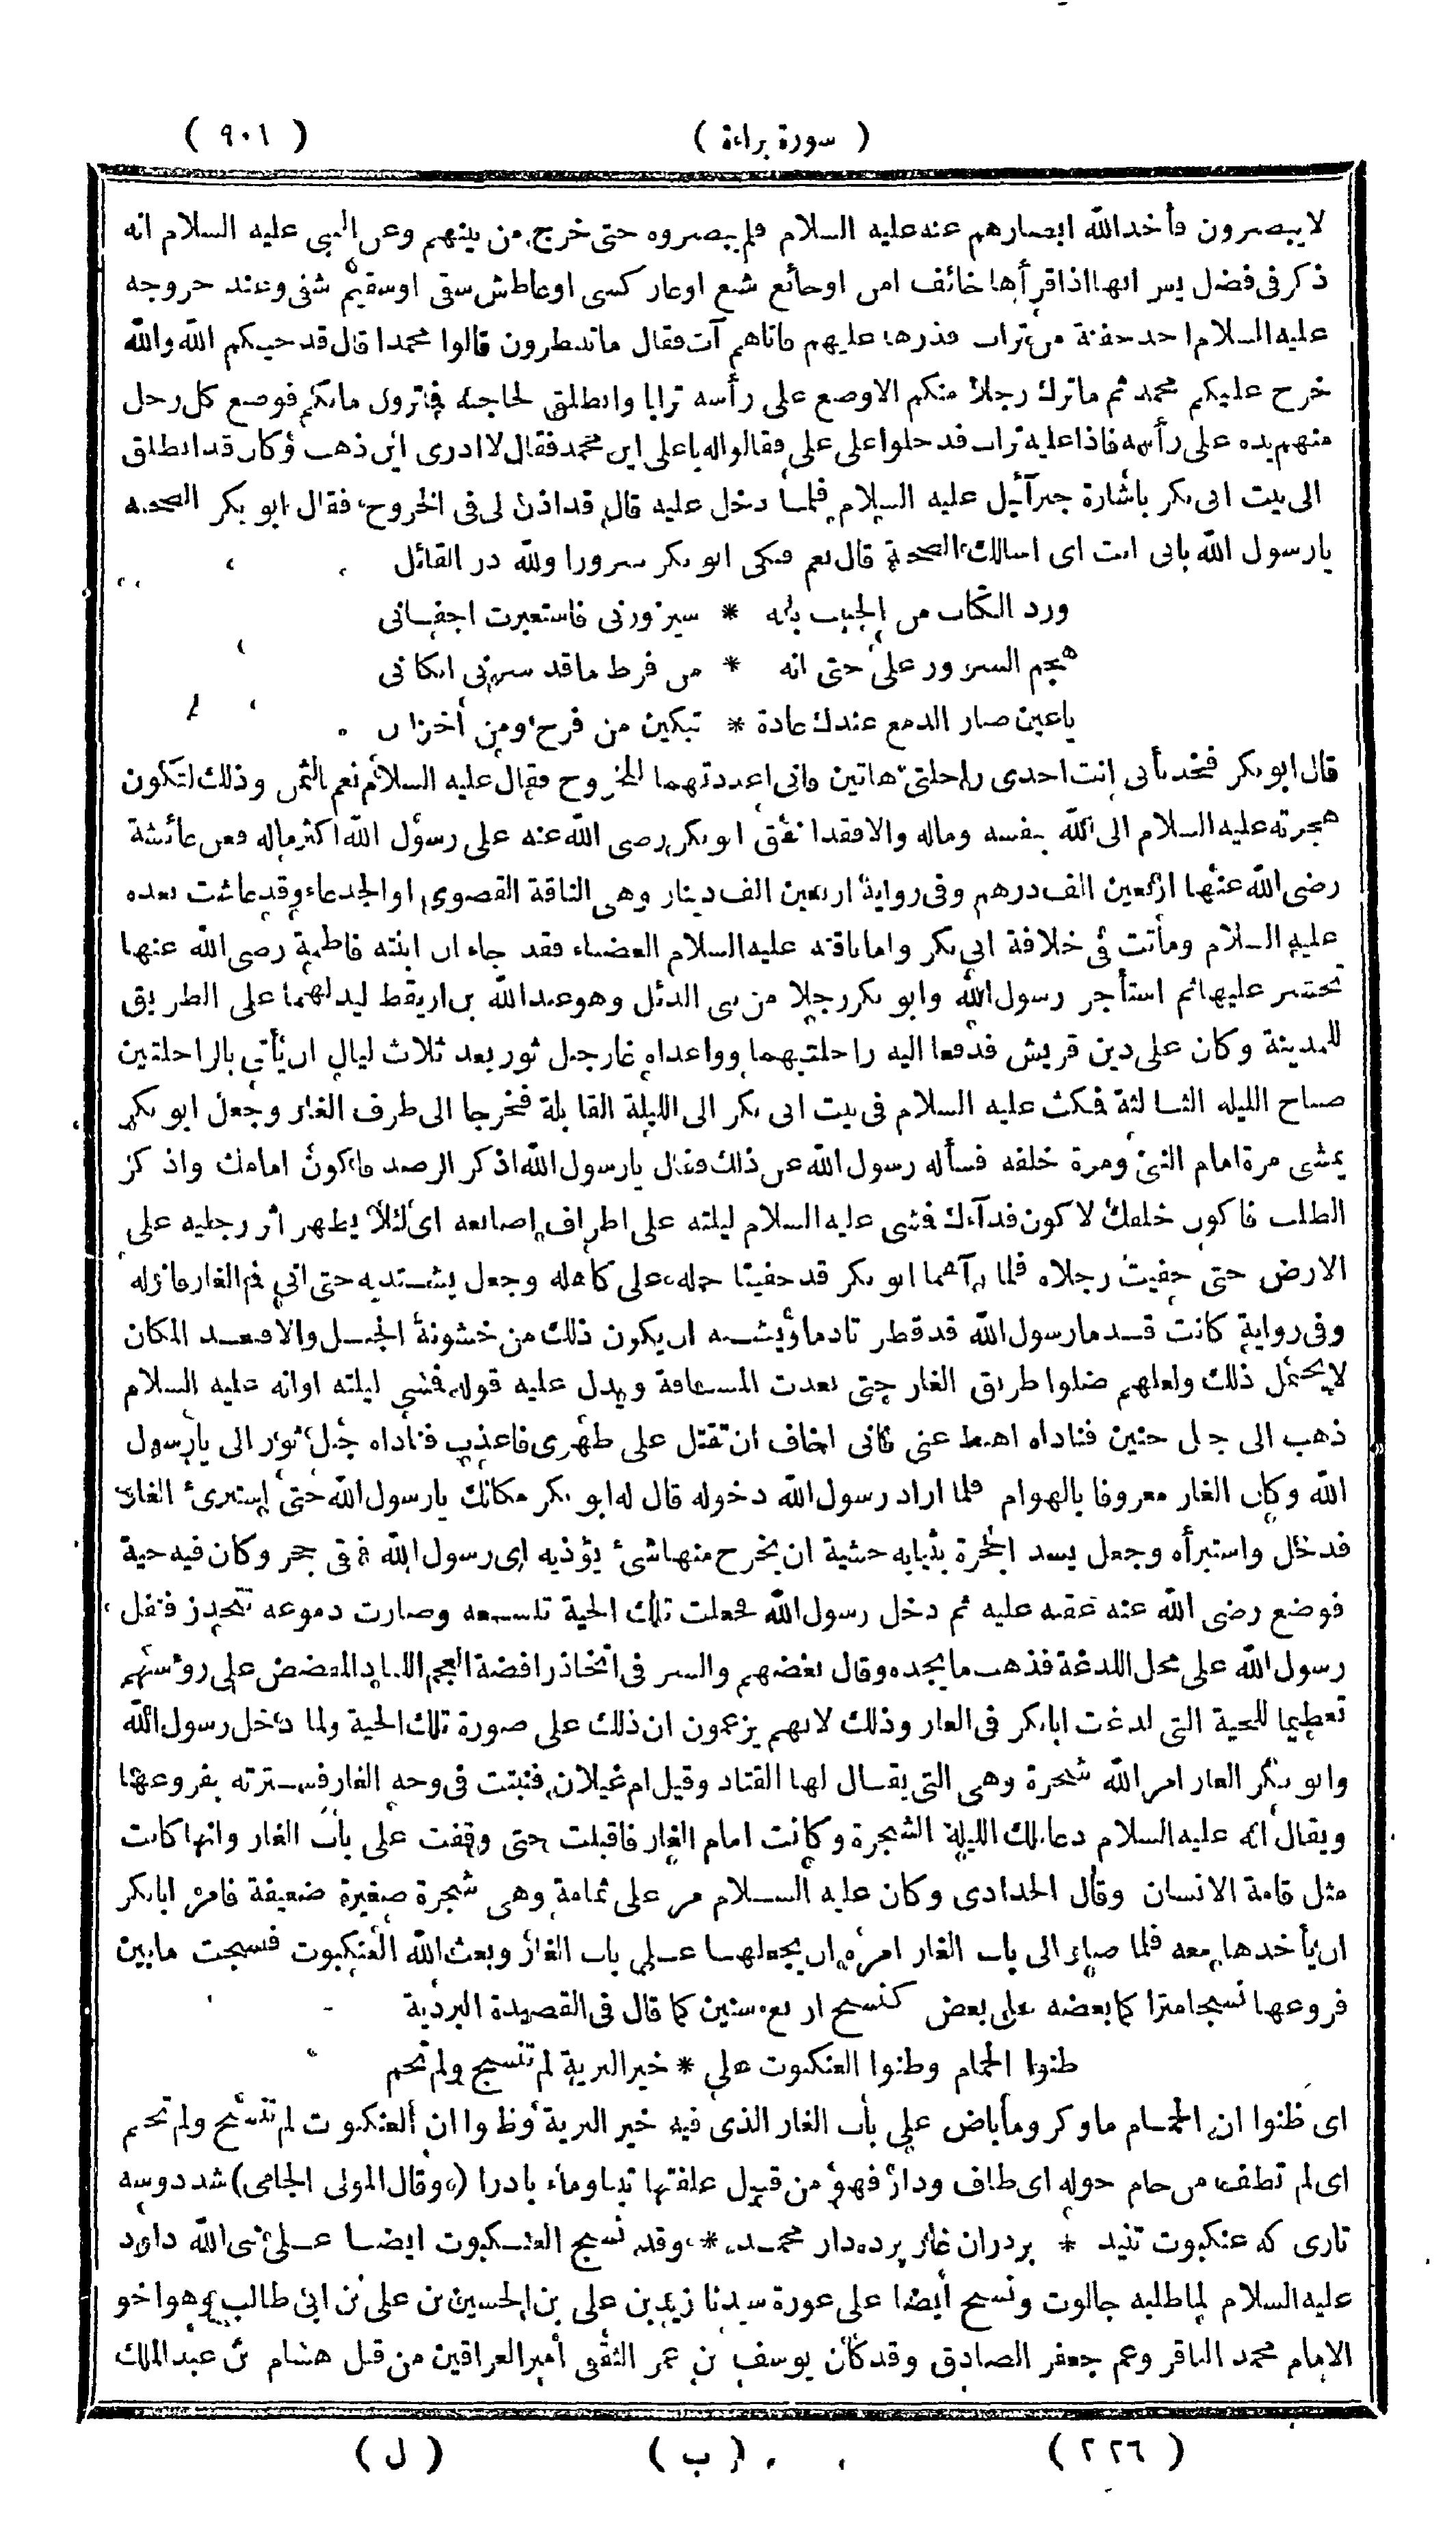 ( سورة براءة ) ( ٩٠١ )
لا يبصرون فأخذ الله ابصارهم عنه عليه السلام فلم يبصروه حتى خرج من بينهم وعن النبى عليه السلام انه
ذكر فى فضل يس انها اذا قرأها خائف امن او جائع شبع او عار كسى او عاطش سقى او سقيم شفى وعند خروجه
عليه السلام اخذ حفنة من تراب فذرها عليهم فاتاهم آت فقال ما تنتظرون قالوا محمدا قال قد خيبكم الله والله
خرج عليكم محمد ثم ما ترك رجلا منكم الا وضع على رأسه ترابا وانطلق لحاجته فما ترون ما بكم فوضع كل رجل
منهم يده على رأسه فاذا عليه تراب فدخلوا على على فقالوا له يا على اين محمد فقال لا ادرى اين ذهب وكان قد انطلق
الى بيت ابى بكر باشارة جبرآئيل عليه السلام فلما دخل عليه قال قد اذن لى فى الخروج فقال ابو بكر الصحبة
يا رسول الله بابى انت اى اسالك الصحبة قال نعم فبكى ابو بكر سرورا ولله در القائل
ورد الكتاب من الحبيب بانه * سيزورنى فاستعبرت اجفانى
هجم السرور على حتى انه * من فرط ما قد سرنى ابكانى
يا عين صار الدمع عندك عادة * تبكين من فرح ومن أحزان
قال ابو بكر فخذ بأبى انت احدى راحلتى هاتين فانى اعددتهما للخروج فقال عليه السلام نعم بالثمن وذلك لتكون
هجرته عليه السلام الى الله بنفسه وماله والا فقد انفق ابو بكر رضى الله عنه على رسول الله اكثر ماله فعن عائشة
رضى الله عنها اربعين الف درهم وفى رواية اربعين الف دينار وهى الناقة القصوى او الجدعاء وقد عاشت بعده
عليه السلام وماتت فى خلافة ابى بكر واما ناقته عليه السلام العضباء فقد جاء ان ابنته فاطمة رضى الله عنها
تحشر عليها ثم استأجر رسول الله وابو بكر رجلا من بنى الدئل وهو عبد الله بن اريقط ليدلهما على الطريق
للمدينة وكان على دين قريش فدفعا اليه راحلتيهما وواعداه غار جبل ثور بعد ثلاث ليال ان يأتى بالراحلتين
صباح الليلة الثالثة فمكث عليه السلام فى بيت ابى بكر الى الليلة القابلة فخرجا الى طرف الغار وجعل ابو بكر
يمشى مرة امام النبى ومرة خلفه فسأله رسول الله عن ذلك فقال يا رسول الله اذكر الرصد فاكون امامك واذكر
الطلب فاكون خلفك لاكون فدآءك فمشى عليه السلام ليلته على اطراف اصابعه اى لئلا يظهر اثر رجليه على
الارض حتى حفيت رجلاه فلما رآهما ابو بكر قد حفيتا حمله على كاهله وجعل يشتد به حتى اتى فم الغار فانزله
وفى رواية كانت قدما رسول الله قد قطرتا دما ويشبه ان يكون ذلك من خشونة الجبل والا فبعد المكان
لا يحتمل ذلك ولعلهم ضلوا طريق الغار حتى بعدت المسافة ويدل عليه قوله فمشى ليلته او انه عليه السلام
ذهب الى جبل حنين فناداه اهبط عنى فانى اخاف ان تقتل على ظهرى فاعذب فناداه جبل ثور الى يا رسول
الله وكان الغار معروفا بالهوام فلما اراد رسول الله دخوله قال له ابو بكر مكانك يا رسول الله حتى استبرئ الغار
فدخل واستبرأه وجعل يسد الحجرة بثيابه خشية ان يخرج منها شئ يؤذيه اى رسول الله فبقى جحر وكان فيه حية
فوضع رضى الله عنه عقبه عليه ثم دخل رسول الله فجعلت تلك الحية تلسعه وصارت دموعه تتحدر فتفل
رسول الله على محل اللدغة فذهب ما يجده وقال بعضهم والسر فى اتخاذ رافضة العجم اللباد المفضض على رؤسهم
تعظيما للحية التى لدغت ابا بكر فى الغار وذلك لانهم يزعمون ان ذلك على صورة تلك الحية ولما دخل رسول الله
وابو بكر الغار امر الله شجرة وهى التى يقال لها القتاد وقيل ام غيلان فنبتت فى وجه الغار فسترته بفروعها
ويقال انه عليه السلام دعا تلك الليلة الشجرة وكانت امام الغار فاقبلت حتى وقفت على باب الغار وانها كانت
مثل قامة الانسان وقال الحدادى وكان عليه السلام مر على ثمامة وهى شجرة صغيرة ضعيفة فامر ابا بكر
ان يأخذها معه فلما صار الى باب الغار امره ان يجعلها على باب الغار وبعث الله العنكبوت فنسجت ما بين
فروعها نسجا متراكما بعضه على بعض كنسج اربع سنين كما قال فى القصيدة البردية
ظنوا الحمام وظنوا العنكبوت على * خير البرية لم تنسج ولم تحم
اى ظنوا ان الحمام ما وكر وما باض على باب الغار الذى فيه خير البرية وظنوا ان العنكبوت لم تنسج ولم تحم
اى لم تطف من حام حوله اى طاف ودار فهو من قبيل علفتها تبنا وماء باردا (وقال المولى الجامى) شد دوسه
تارى كه عنكبوت تنيد * بر در آن غار پرده دار محمد * وقد نسج العنكبوت ايضا على نبى الله داود
عليه السلام لما طلبه جالوت ونسج أيضا على عورة سيدنا زيد بن على بن الحسين بن على بن ابى طالب وهو اخو
الامام محمد الباقر وعم جعفر الصادق وقد كان يوسف بن عمر الثقفى أمير العراقين من قبل هشام بن عبد الملك
( ٢٢٦ ) ( ب ) ( ل )